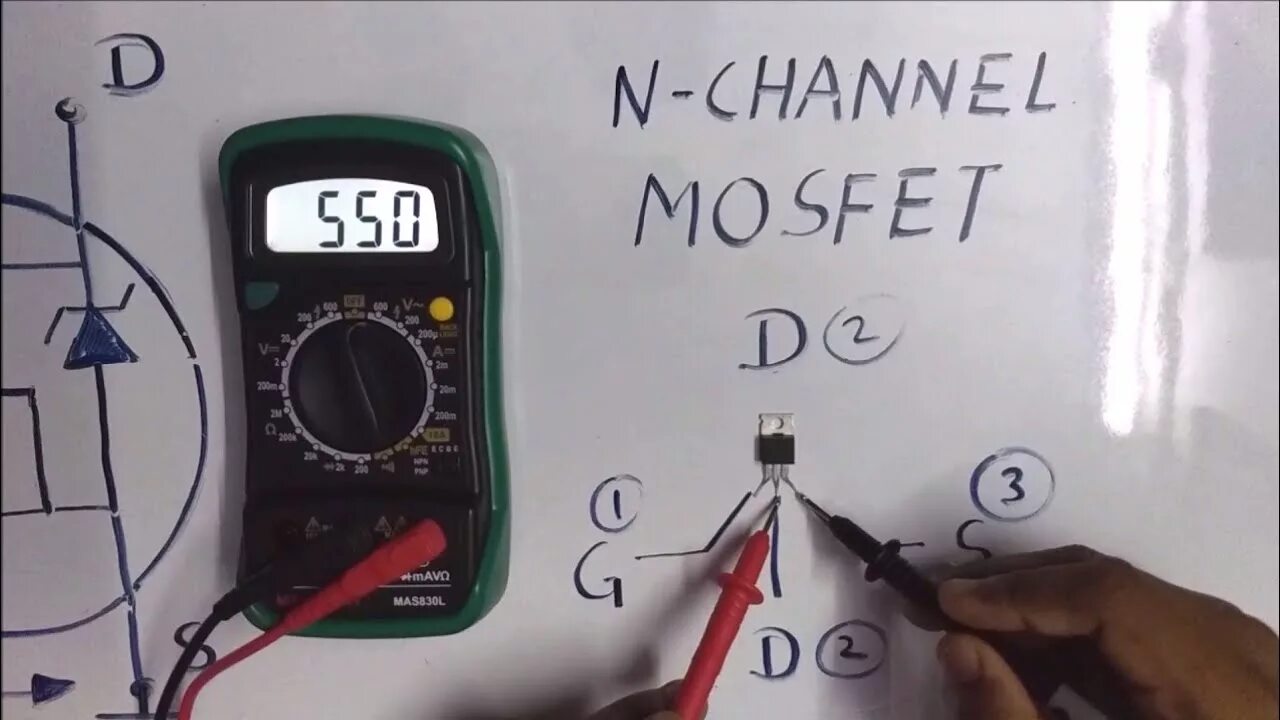 D
N-CHANNEL
MOSFET
550
OFF
600
200
20
V
2
200m
2M
Ω
200k
20k
2k
200
600
V~
200
200μ
BACK
LIGHT
A
2m
20m
200m
10A
hFE
E C B E
NPN
PNP
mAVΩ
MAS830L
D 2
1
G
3
S
D 2
S